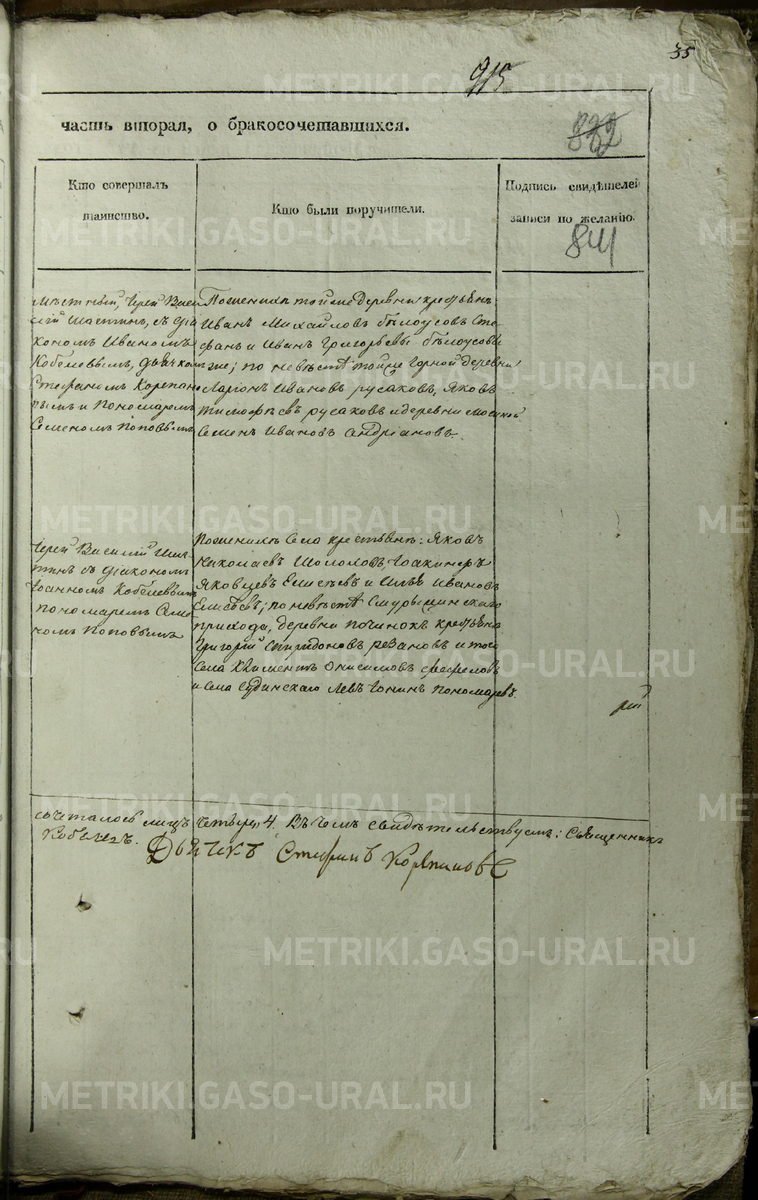 35
915
часть вторая, о бракосочетавшихся.
882
Кто совершалъ
таинство.
Кто были поручители.
Подпись свидѣтелей
записи по желанію.
841
Мѣстный, Іерей Васи
лій Шастинъ, съ діа
кономъ Иваномъ
Кобелевымъ, дьячкомъ
Стефаномъ Корепано
вымъ и Пономаремъ
Семеномъ Поповымъ
По женихѣ той же деревни крестьяне
Иванъ Михайловъ бѣлоусовъ Сте
фанъ и Иванъ Григорьевы бѣлоусовы
по невѣстѣ той же Горной деревни
Ларіонъ Ивановъ русаковъ, Яковъ
тимофѣевъ русаковъ и деревни
Семенъ Ивановъ Андріановъ
Іерей Василій Шас
тинъ съ діакономъ
Іоанномъ Кобелевымъ
пономаремъ Семе
номъ Поповымъ
По женихѣ Села крестьяне: Яковъ
Николаевъ
Яковлевъ Елисѣевъ и Ивановъ
Елисѣевъ; по невѣстѣ
прихода, деревни починокъ крестьяне
Григорій Спиридоновъ и того
Села Климентъ Онисимовъ
и Села Судинскаго Левъ Пономаревъ.
сочеталось лицъ четыре, 4. Въ чемъ свидѣтельствуемъ: Священникъ
Кобелевъ. Дьячекъ Стефанъ Корепановъ
METRIKI.GASO-URAL.RU